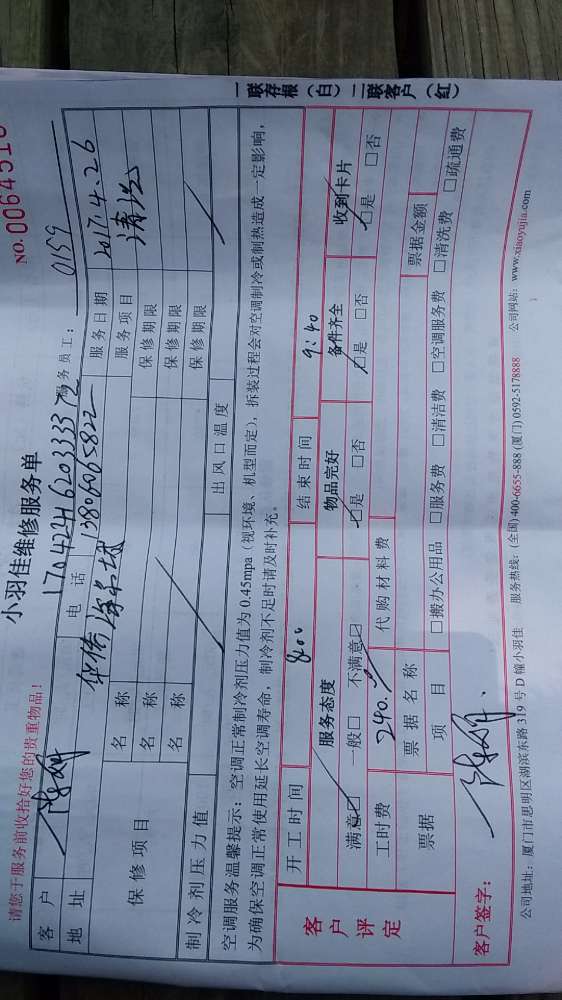 一联存根（白）二联客户（红）
小羽佳维修服务单
NO. 0064516
请您于服务前收拾好您的贵重物品！
170424462033337 服务员工： 0159
客户 电话 13806065822 服务日期 2017.4.26
地址 服务项目 清洗
保修项目 名称 保修期限
名称 保修期限
名称 保修期限
制冷剂压力值 出风口温度
空调服务温馨提示：空调正常制冷剂压力值为0.45mpa（视环境、机型而定），拆装过程会对空调制冷或制热造成一定影响，
为确保空调正常使用延长空调寿命，制冷剂不足时请及时补充。
开工时间 8:00 结束时间 9:40
客户评定 服务态度 物品完好 备件齐全 收到卡片
满意☑ 一般□ 不满意□ ☑是 □否 ☑是 □否 ☑是 □否
工时费 240. 代购材料费
票据 票据名称 票据金额
项目 □搬办公用品 □服务费 □清洁费 □空调服务费 □清洗费 □疏通费
客户签字：
公司地址：厦门市思明区湖滨东路319号D幢小羽佳 服务热线：(全国) 400-6655-888 (厦门) 0592-5178888 公司网站：www.xiaoyujia.com